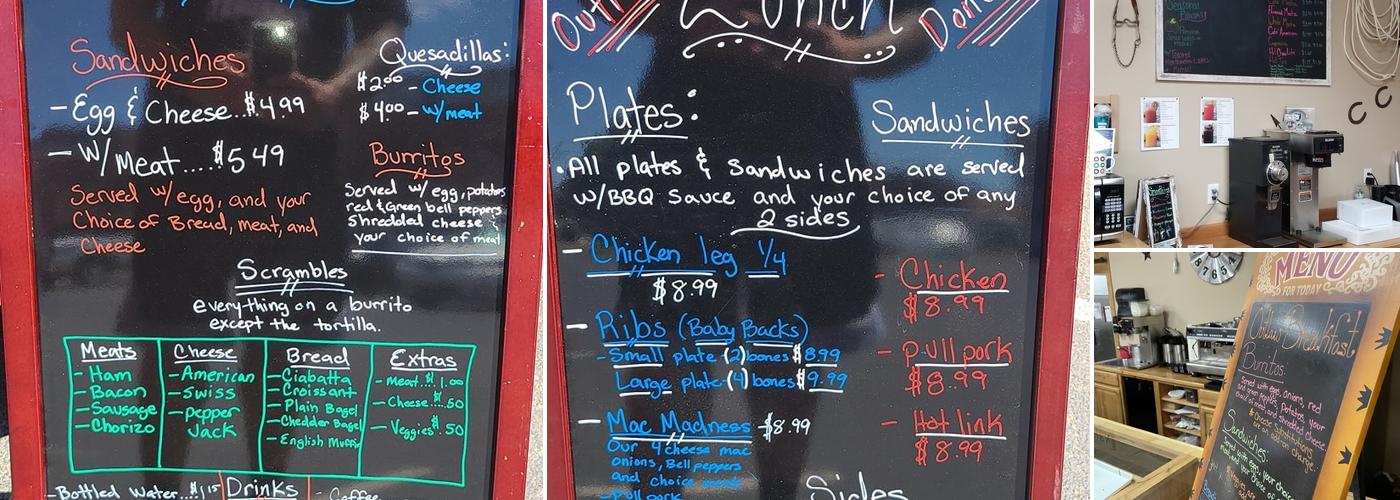 Sandwiches
- Egg & Cheese..$4.99
- w/Meat....$5.49
Served w/egg, and your
Choice of Bread, meat, and
Cheese
Quesadillas:
$2.00 - Cheese
$4.00 - w/meat
Burritos
Served w/egg, potatoes
red & green bell peppers
Shredded cheese &
your choice of meat
Scrambles
everything on a burrito
except the tortilla.
Meats
- Ham
- Bacon
- Sausage
- Chorizo
Cheese
- American
- Swiss
- pepper
Jack
Bread
- Ciabatta
- Croissant
- Plain Bagel
- Chedder Bagel
- English Muffin
Extras
- Meat..$1.00
- Cheese...50
- Veggies $.50
- Bottled Water...$1.15
Drinks
- Coffee
Lunch
Plates:
Sandwiches
• All plates & Sandwiches are served
w/BBQ Sauce and your choice of any
2 sides
- Chicken leg 1/4
$8.99
- Ribs (Baby Backs)
- Small plate (2) bones $8.99
Large plate-(4) bones $9.99
- Mac Madness - $8.99
Our 4 cheese mac
onions, Bell peppers
and choice meat
- Pull pork
- Chicken
$8.99
- pull pork
$8.99
- Hot link
$8.99
Sides
Seasonal
MENU
FOR TODAY
Breakfast
Burritos:
Served with eggs, onions, red
and green peppers, potatoes, your
choice of meat and shredded cheese
Sandwiches:
Served with egg, your choice